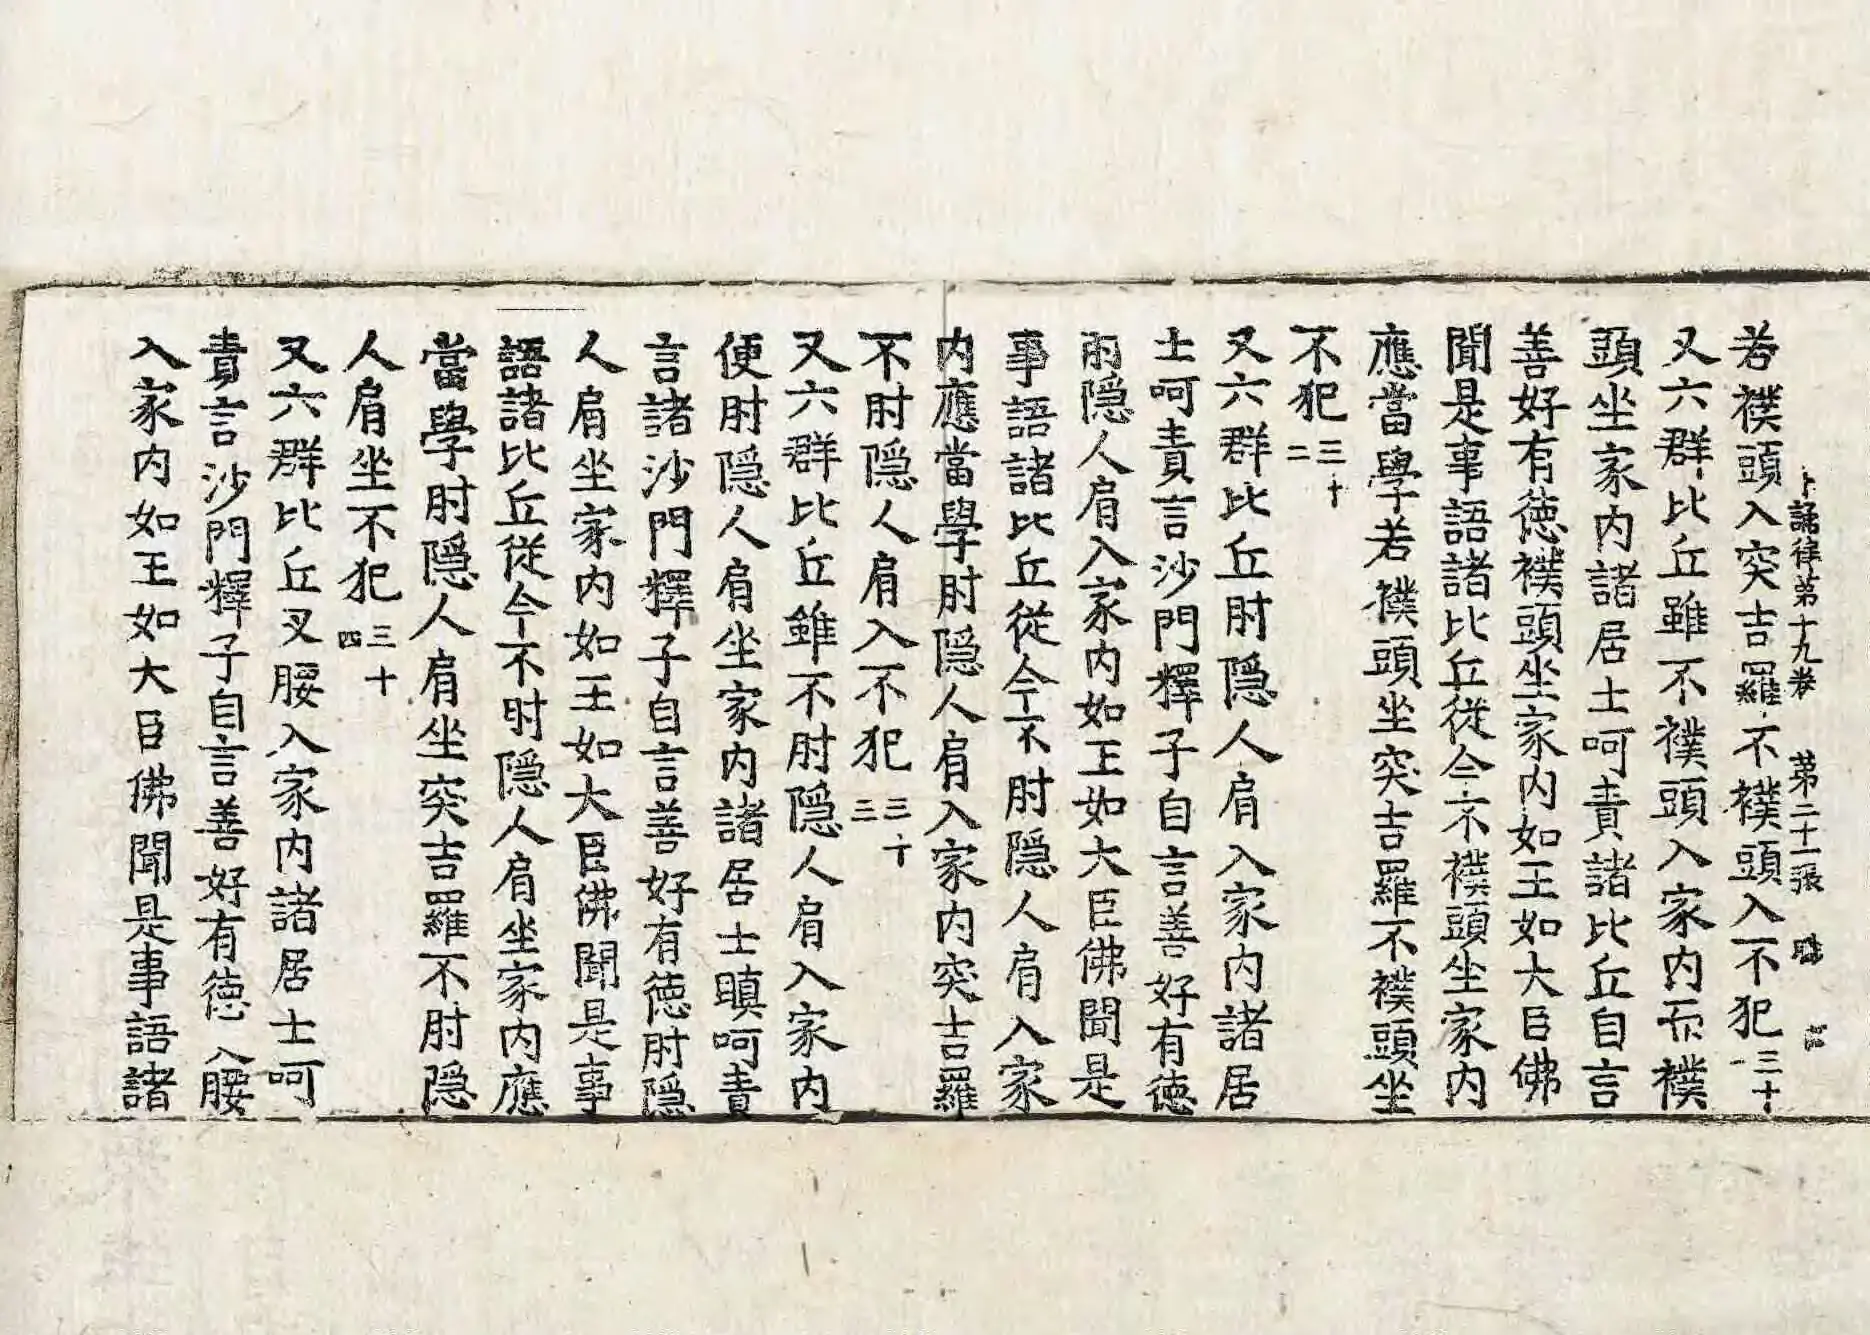 十誦律第十九卷　第二十一張
若襆頭入突吉羅不襆頭入不犯三十一
又六群比丘雖不襆頭入家内而襆
頭坐家内諸居士呵責諸比丘自言
善好有德襆頭坐家内如王如大臣佛
聞是事語諸比丘從今不襆頭坐家内
應當學若襆頭坐突吉羅不襆頭坐
不犯三十二
又六群比丘肘隱人肩入家内諸居
士呵責言沙門釋子自言善好有德
肘隱人肩入家内如王如大臣佛聞是
事語諸比丘從今不肘隱人肩入家
内應當學肘隱人肩入家内突吉羅
不肘隱人肩入不犯三十三
又六群比丘雖不肘隱人肩入家内
便肘隱人肩坐家内諸居士瞋呵責
言諸沙門釋子自言善好有德肘隱
人肩坐家内如王如大臣佛聞是事
語諸比丘從今不肘隱人肩坐家内應
當學肘隱人肩坐突吉羅不肘隱
人肩坐不犯三十四
又六群比丘叉腰入家内諸居士呵
責言沙門釋子自言善好有德叉腰
入家内如王如大臣佛聞是事語諸